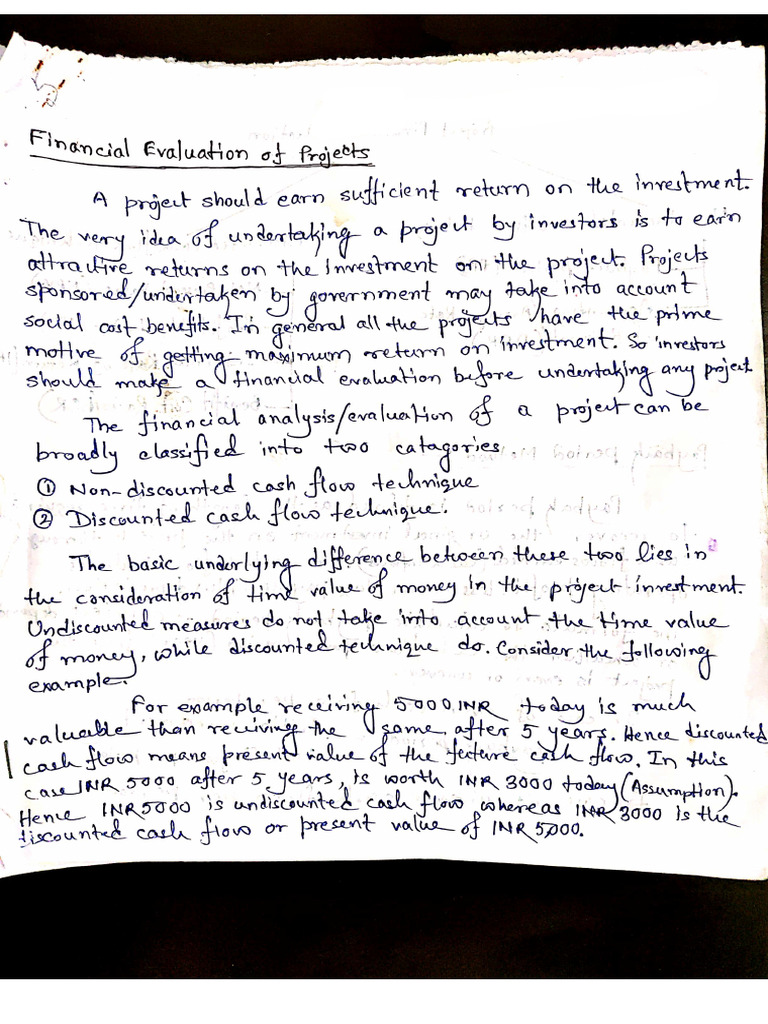 Financial Evaluation of Projects
A project should earn sufficient return on the investment.
The very idea of undertaking a project by investors is to earn
attractive returns on the investment on the project. Projects
sponsored/undertaken by government may take into account
social cost benefits. In general all the projects have the prime
motive of getting maximum return on investment. So investors
should make a financial evaluation before undertaking any project
The financial analysis/evaluation of a project can be
broadly classified into two catagories.
① Non-discounted cash flow technique
② Discounted cash flow technique.
The basic underlying difference between these two lies in
the consideration of time value of money in the project investment.
Undiscounted measures do not take into account the time value
of money, while discounted technique do. Consider the following
example.
For example receiving 5000 INR today is much
valuable than reciving the same after 5 years. Hence discounted
cash flow means present value of the future cash flow. In this
case INR 5000 after 5 years, is worth INR 3000 today (Assumption).
Hence INR 5000 is undiscounted cash flow whereas INR 3000 is the
discounted cash flow or present value of INR 5000.